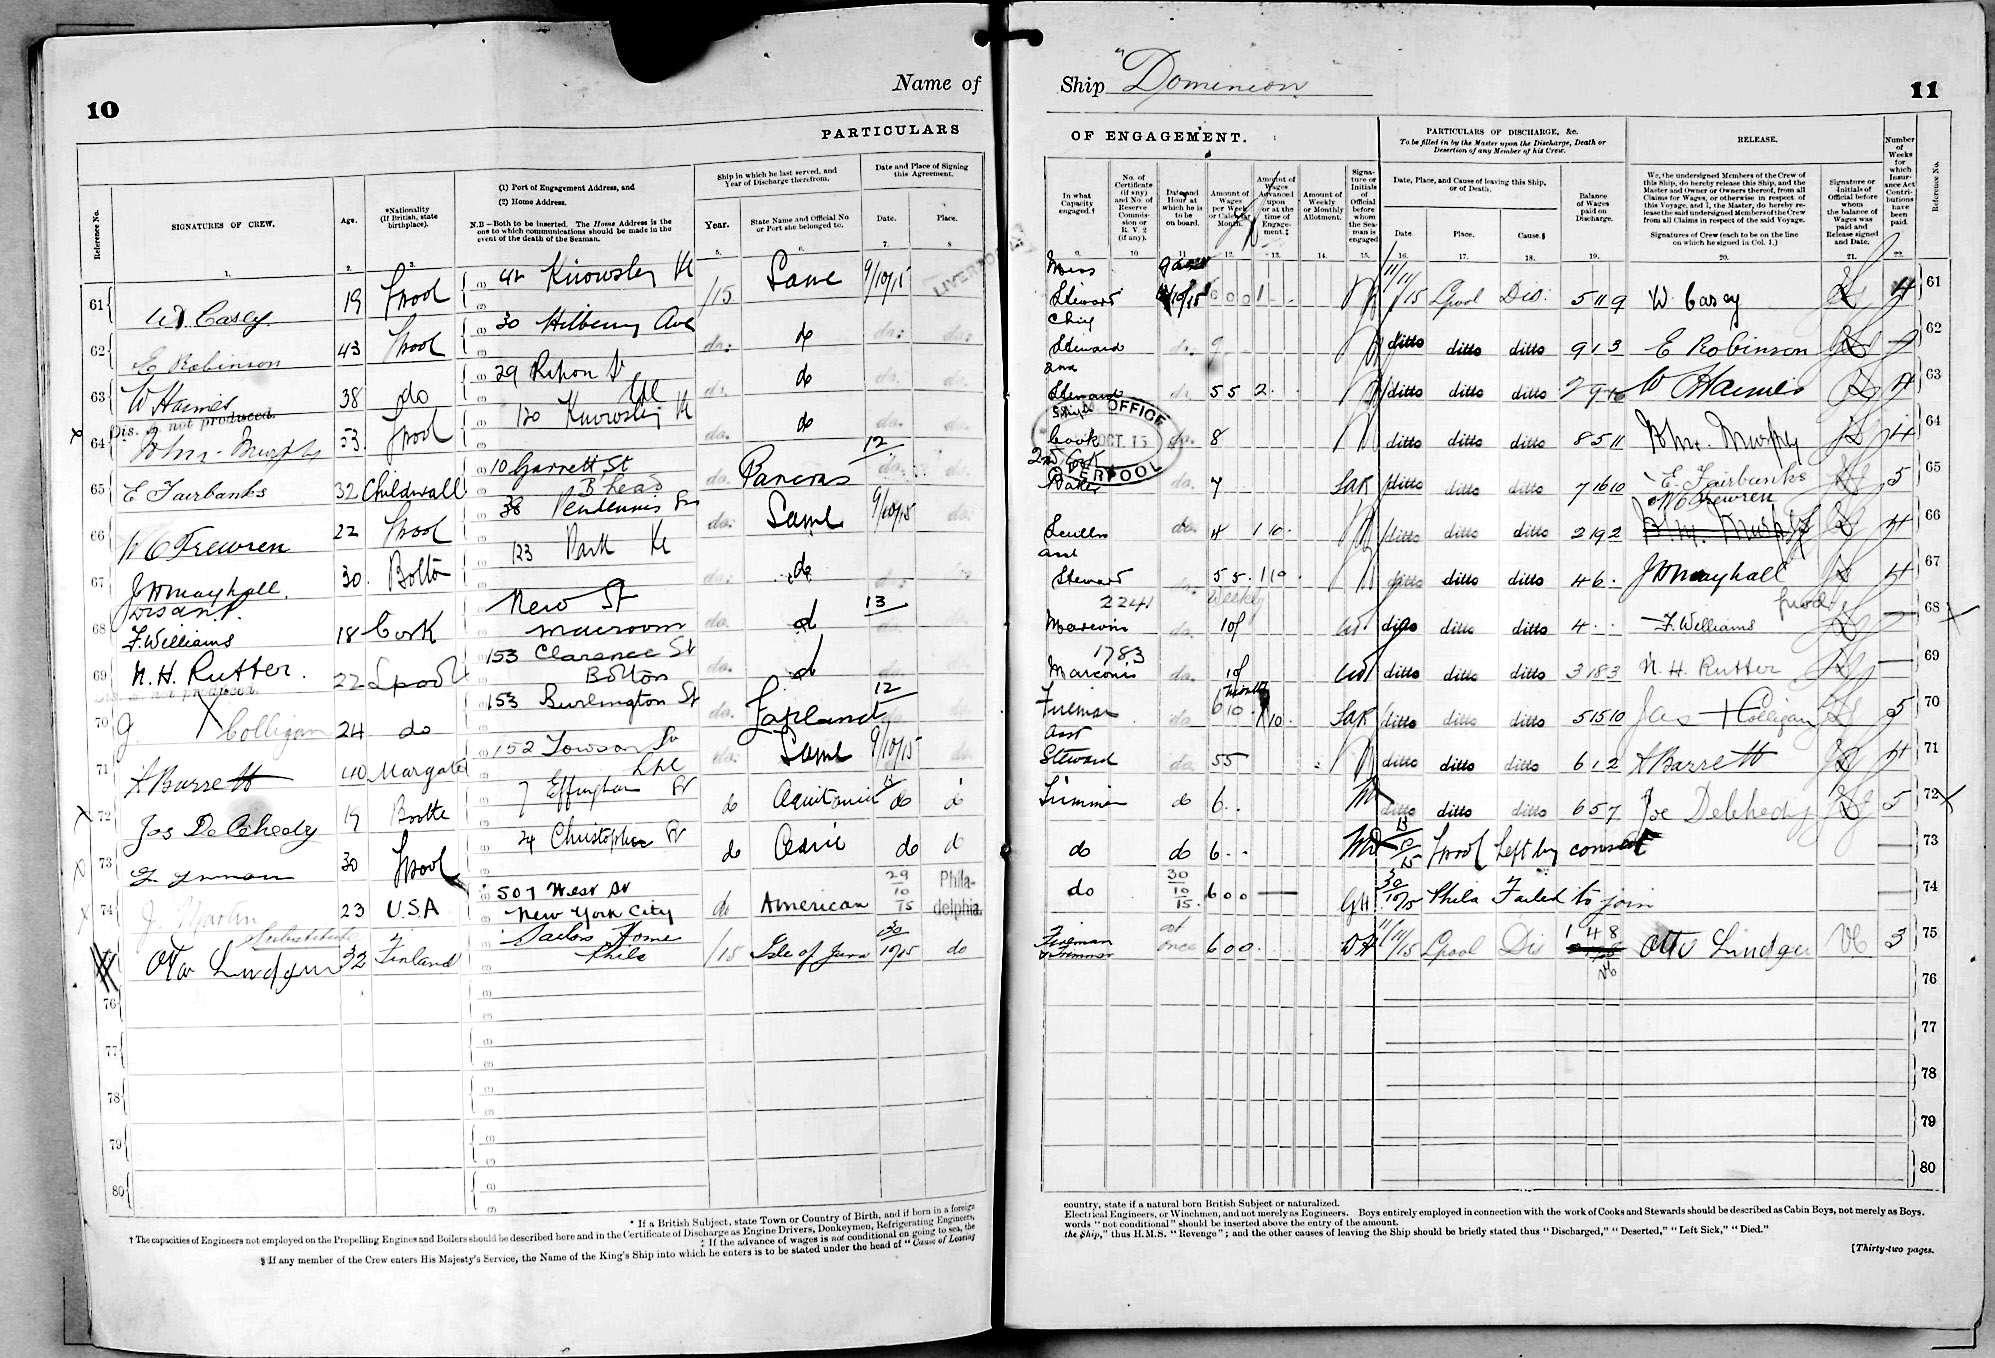 10
Name of
PARTICULARS
Reference No.
SIGNATURES OF CREW.
Age.
*Nationality (If British, state birthplace).
(1) Port of Engagement Address, and
(2) Home Address.
N.B—Both to be inserted. The Home Address is the one to which communications should be made in the event of the death of the Seaman.
Ship in which he last served, and Year of Discharge therefrom.
Year.
State Name and Official No or Port she belonged to.
Date and Place of Signing this Agreement.
Date.
Place.
1. 2. 3. 5. 6. 7. 8
61 W. Casey 19 L'pool 42 Knowsley Rd /15 Same 9/10/15 LIVERPOOL
62 E Robinson 43 L'pool 30 Hilberry Ave do. do do. do.
63 W Haimes 38 do 29 Ripon St Lpl do. do do. do.
Dis. A not produced.
64 Murphy 53 L'pool 120 Knowsley Rd do. do do.
65 E Fairbanks 32 Childwall 10 Garrett St B'head do. 12 do.
66 W C Frewren 22 L'pool 38 do. Same 9/10/15 do.
67 J W Mayhall. 30. Bolton 123 Park Rd do. do do. do.
68 F. Williams 18 Cork New St Macroom do. do 13 do.
69 N. H. Rutter. 22 Lpool 153 Clarence St Bolton do. do do.
70 X Colligan 24 do 153 Burlington St do. Lapland 12 do.
71 A Barrett 40 Margate 152 Towson St Lpl do. Same 9/10/15 do.
72 Jos Delehedy 19 Bootle 7 Effingham St do Aquitania do do
73 30 L'pool 24 Christopher St do Cedric do do
74 J. Martin 23 U.S.A 507 West St New York City do American 29/10/15 Philadelphia.
Substitute
Otto Lindgren 32 Finland Sailors Home Phila /15 Isle of Jura 30/10/15 do
76
77
78
79
80
* If a British Subject, state Town or Country of Birth, and if born in a foreign
† The capacities of Engineers not employed on the Propelling Engines and Boilers should be described here and in the Certificate of Discharge as Engine Drivers, Donkeymen, Refrigerating Engineers,
‡ If the advance of wages is not conditional on going to sea, the
§ If any member of the Crew enters His Majesty's Service, the Name of the King's Ship into which he enters is to be stated under the head of "Cause of Leaving
Ship "Dominion"
11
OF ENGAGEMENT.
PARTICULARS OF DISCHARGE, &c.
To be filled in by the Master upon the Discharge, Death or Desertion of any Member of his Crew.
RELEASE.
In what Capacity engaged.†
No. of Certificate (if any) and No. of Reserve Commission or R. V. 2 (if any).
Date and Hour at which he is to be on board.
Amount of Wages per Week or Calendar Month.
Amount of Wages Advanced upon or at the time of Engagement.‡
Amount of Weekly or Monthly Allotment.
Signature or Initials of Official before whom the Seaman is engaged
Date, Place, and Cause of leaving this Ship, or of Death.
Date.
Place.
Cause.§
Balance of Wages paid on Discharge.
We, the undersigned Members of the Crew of this Ship, do hereby release this Ship, and the Master and Owner or Owners thereof, from all Claims for Wages, or otherwise in respect of this Voyage, and I, the Master, do hereby release the said undersigned Members of the Crew from all Claims in respect of the said Voyage.
Signatures of Crew (each to be on the line on which he signed in Col. 1.)
Signature or Initials of Official before whom the balance of Wages was paid and Release signed and Date.
Number of Weeks for which Insurance Act Contributions have been paid.
Reference No.
9. 10 11 12. 13. 14. 15. 16. 17. 18. 19. 20. 21. 22.
Mess Steward 11/11/15 Lpool Dis. 5 11 9 W. Casey 4 61
Chief Steward do. 9 ditto ditto ditto 9 1 3 E Robinson 62
2nd Steward do. 5 5 2. ditto ditto ditto W Haimes 4 63
Ships Cook do. 8 ditto ditto ditto 8 5 11 Murphy 4 64
OFFICE OCT. 15 LIVERPOOL
2nd Cook Baker do. 7 SaR ditto ditto ditto 7 16 10 E. Fairbanks 5 65
W C Frewren
Sculln do. 4 1 10. ditto ditto ditto 2 19 2 4 66
Asst Steward do. 5 5. 1 10. ditto ditto ditto 4 6. J W Mayhall 4 67
2241 Weekly
Marconi do. 10/ ditto ditto ditto 4 . . F. Williams 68
1783
Marconi do. 10/ ditto ditto ditto 3 18 3 N. H. Rutter 69
Fireman do. 6 10. 1 10. SaR ditto ditto ditto 5 15 10 Jas Colligan 5 70
Asst Steward do. 5 5 ditto ditto ditto 6 1 2 A Barrett 4 71
Trimmer do 6 . . ditto ditto ditto 6 5 7 Joe Delehedy 5 72
do do 6 . . L'pool Left by consent 73
do 30/10/15. 6 0 0 — GH 30/10/15 Phila Failed to join 74
Fireman & Trimmer at once 6 0 0. 11/11/15 Lpool Dis 1 4 8 Otto Lindgren 3 75
76
77
78
79
80
country, state if a natural born British Subject or naturalized.
Electrical Engineers, or Winchmen, and not merely as Engineers. Boys entirely employed in connection with the work of Cooks and Stewards should be described as Cabin Boys, not merely as Boys.
words "not conditional" should be inserted above the entry of the amount.
the Ship," thus H.M.S. "Revenge"; and the other causes of leaving the Ship should be briefly stated thus "Discharged," "Deserted," "Left Sick," "Died."
[Thirty-two pages.